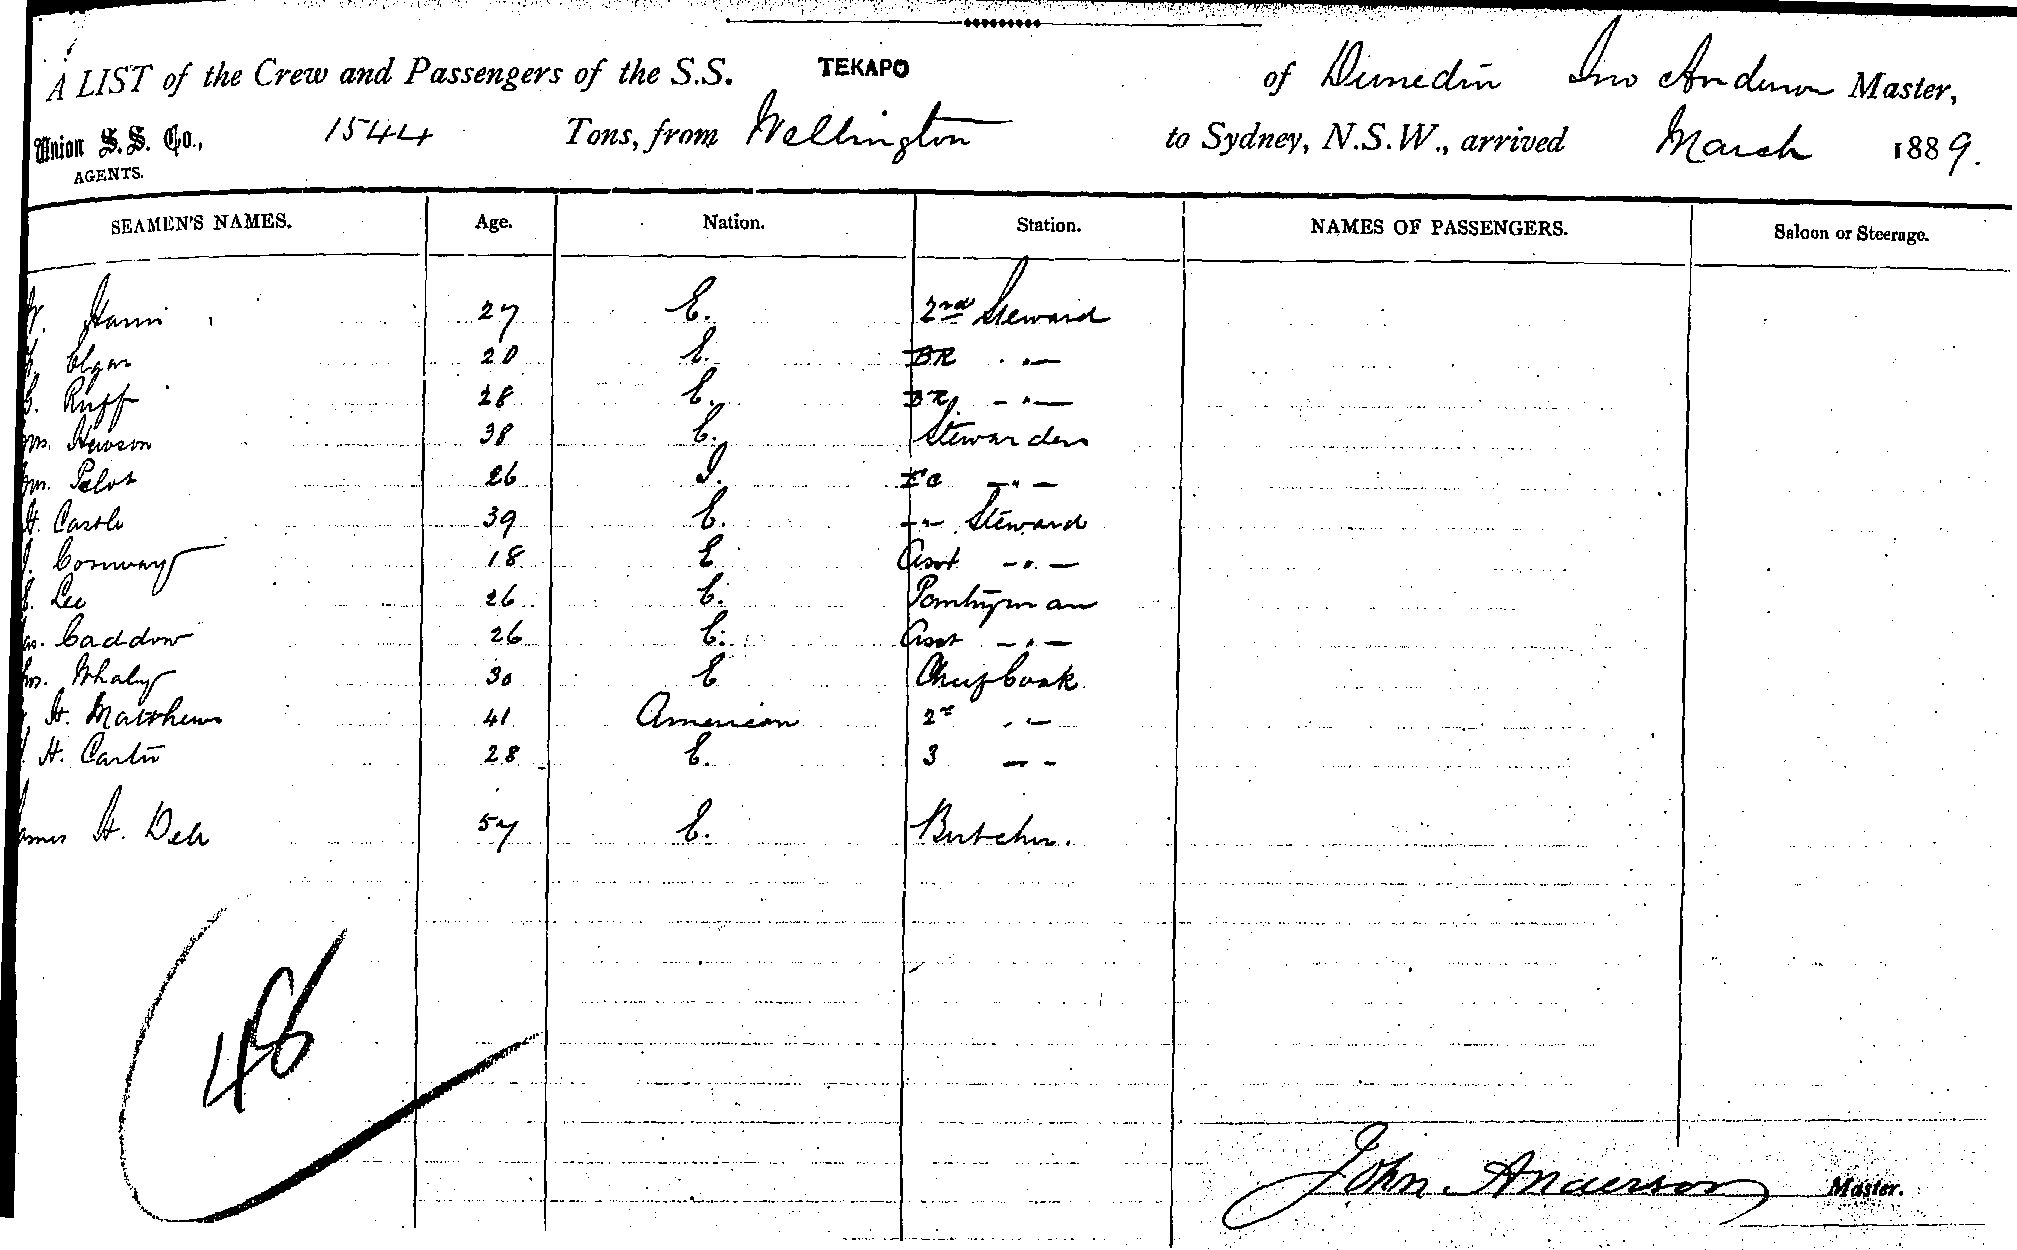 A LIST of the Crew and Passengers of the S.S. TEKAPO of Dunedin Jno Anderson Master,
Union S.S. Co., 1544 Tons, from Wellington to Sydney, N.S.W., arrived March 1889.
AGENTS.
SEAMEN'S NAMES. Age. Nation. Station. NAMES OF PASSENGERS. Saloon or Steerage.
27 E. 2nd Steward
Elgar 20 E. BR " —
G. Ruff 28 E. BR — " —
Hewson 38 E. Stewardess
Pelot 26 I. FC — " —
H. Castle 39 E. — " — Steward
J. Conway 18 E Asst — " —
E. Lee 26 E. Pantryman
Caddow 26 E. Asst — " —
Whaley 30 E Chief Cook
H. Matthews 41 American 2nd " —
H. Carter 28 E. 3 — " —
James H. 57 E. Butcher.
46
John Anderson Master.